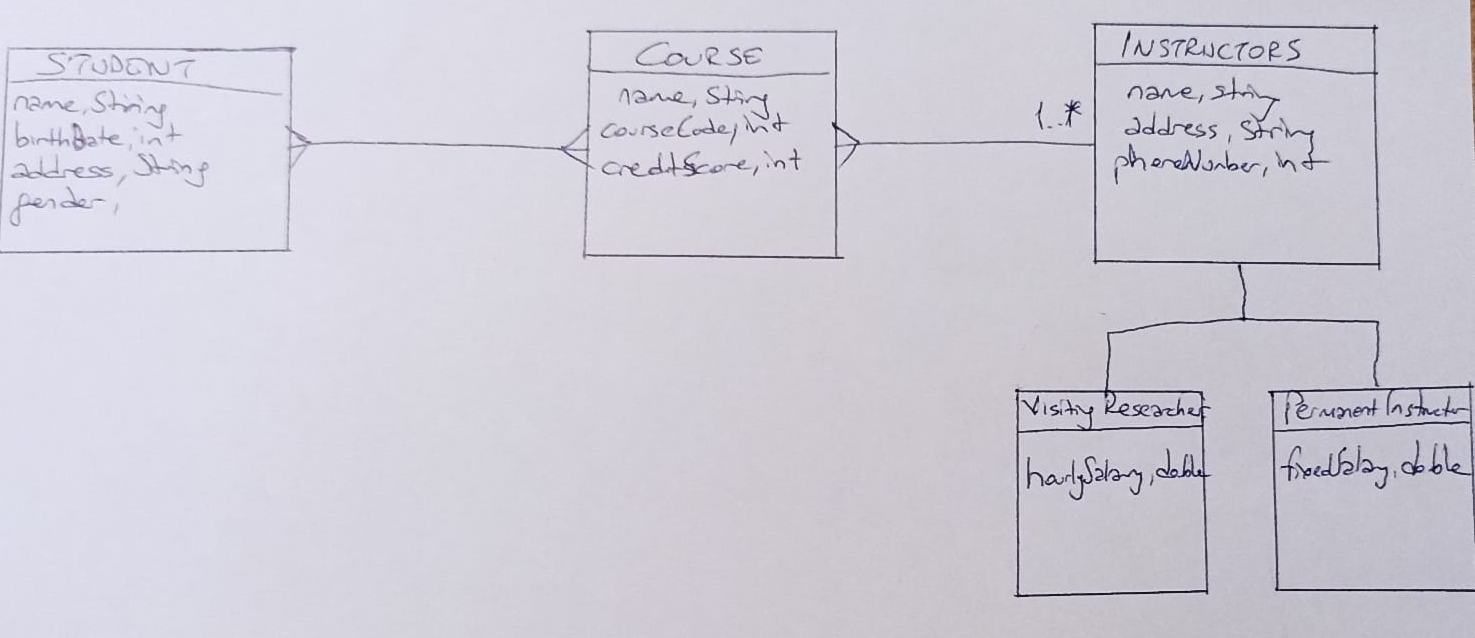 STUDENT
name, String
birthDate, int
address, String
gender,
COURSE
name, String
courseCode, int
creditScore, int
1..*
INSTRUCTORS
name, string
address, String
phoneNumber, int
Visiting Researcher
hourlySalary, double
Permanent Instructor
fixedSalary, double